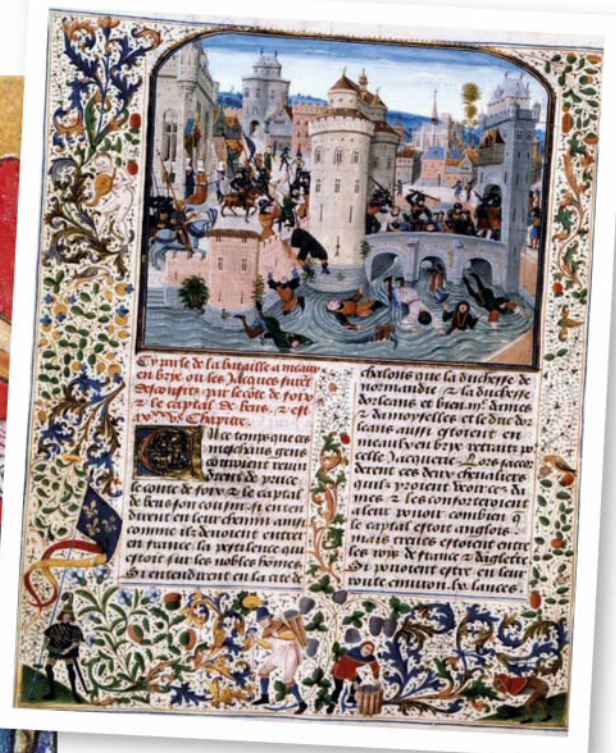 Cy parle de la bataille a meaulx
en brye ou les Jacques furēt
desconfits par le cōte de foix
⁊ le captal de beus ⁊ est
Chapitre
En ce temps que ces
meschans gens
couroient
de pruce
le conte de foix ⁊ le captal
de beus son cousin si enten
dirent en leur chemin ainsi
comme ilz devoient entrer
en france la pestilence que
estoit sur les nobles hōmes
Si entendirent en la cite de
chalons que la duchesse de
normandie ⁊ la duchesse
dorleans et bien dames
⁊ damoyselles et le duc dor
leans aussi estoient en
meaulx en brye retrais
celle Jacquerie Lors
derent ces deux chevaliers
quilz yroient ces da
mes ⁊ les conforteroient
a leur pouoir combien
le captal estoit anglois
mais treues estoient entre
les rois de france ⁊
Si pouoient estre en leur
route environ lances